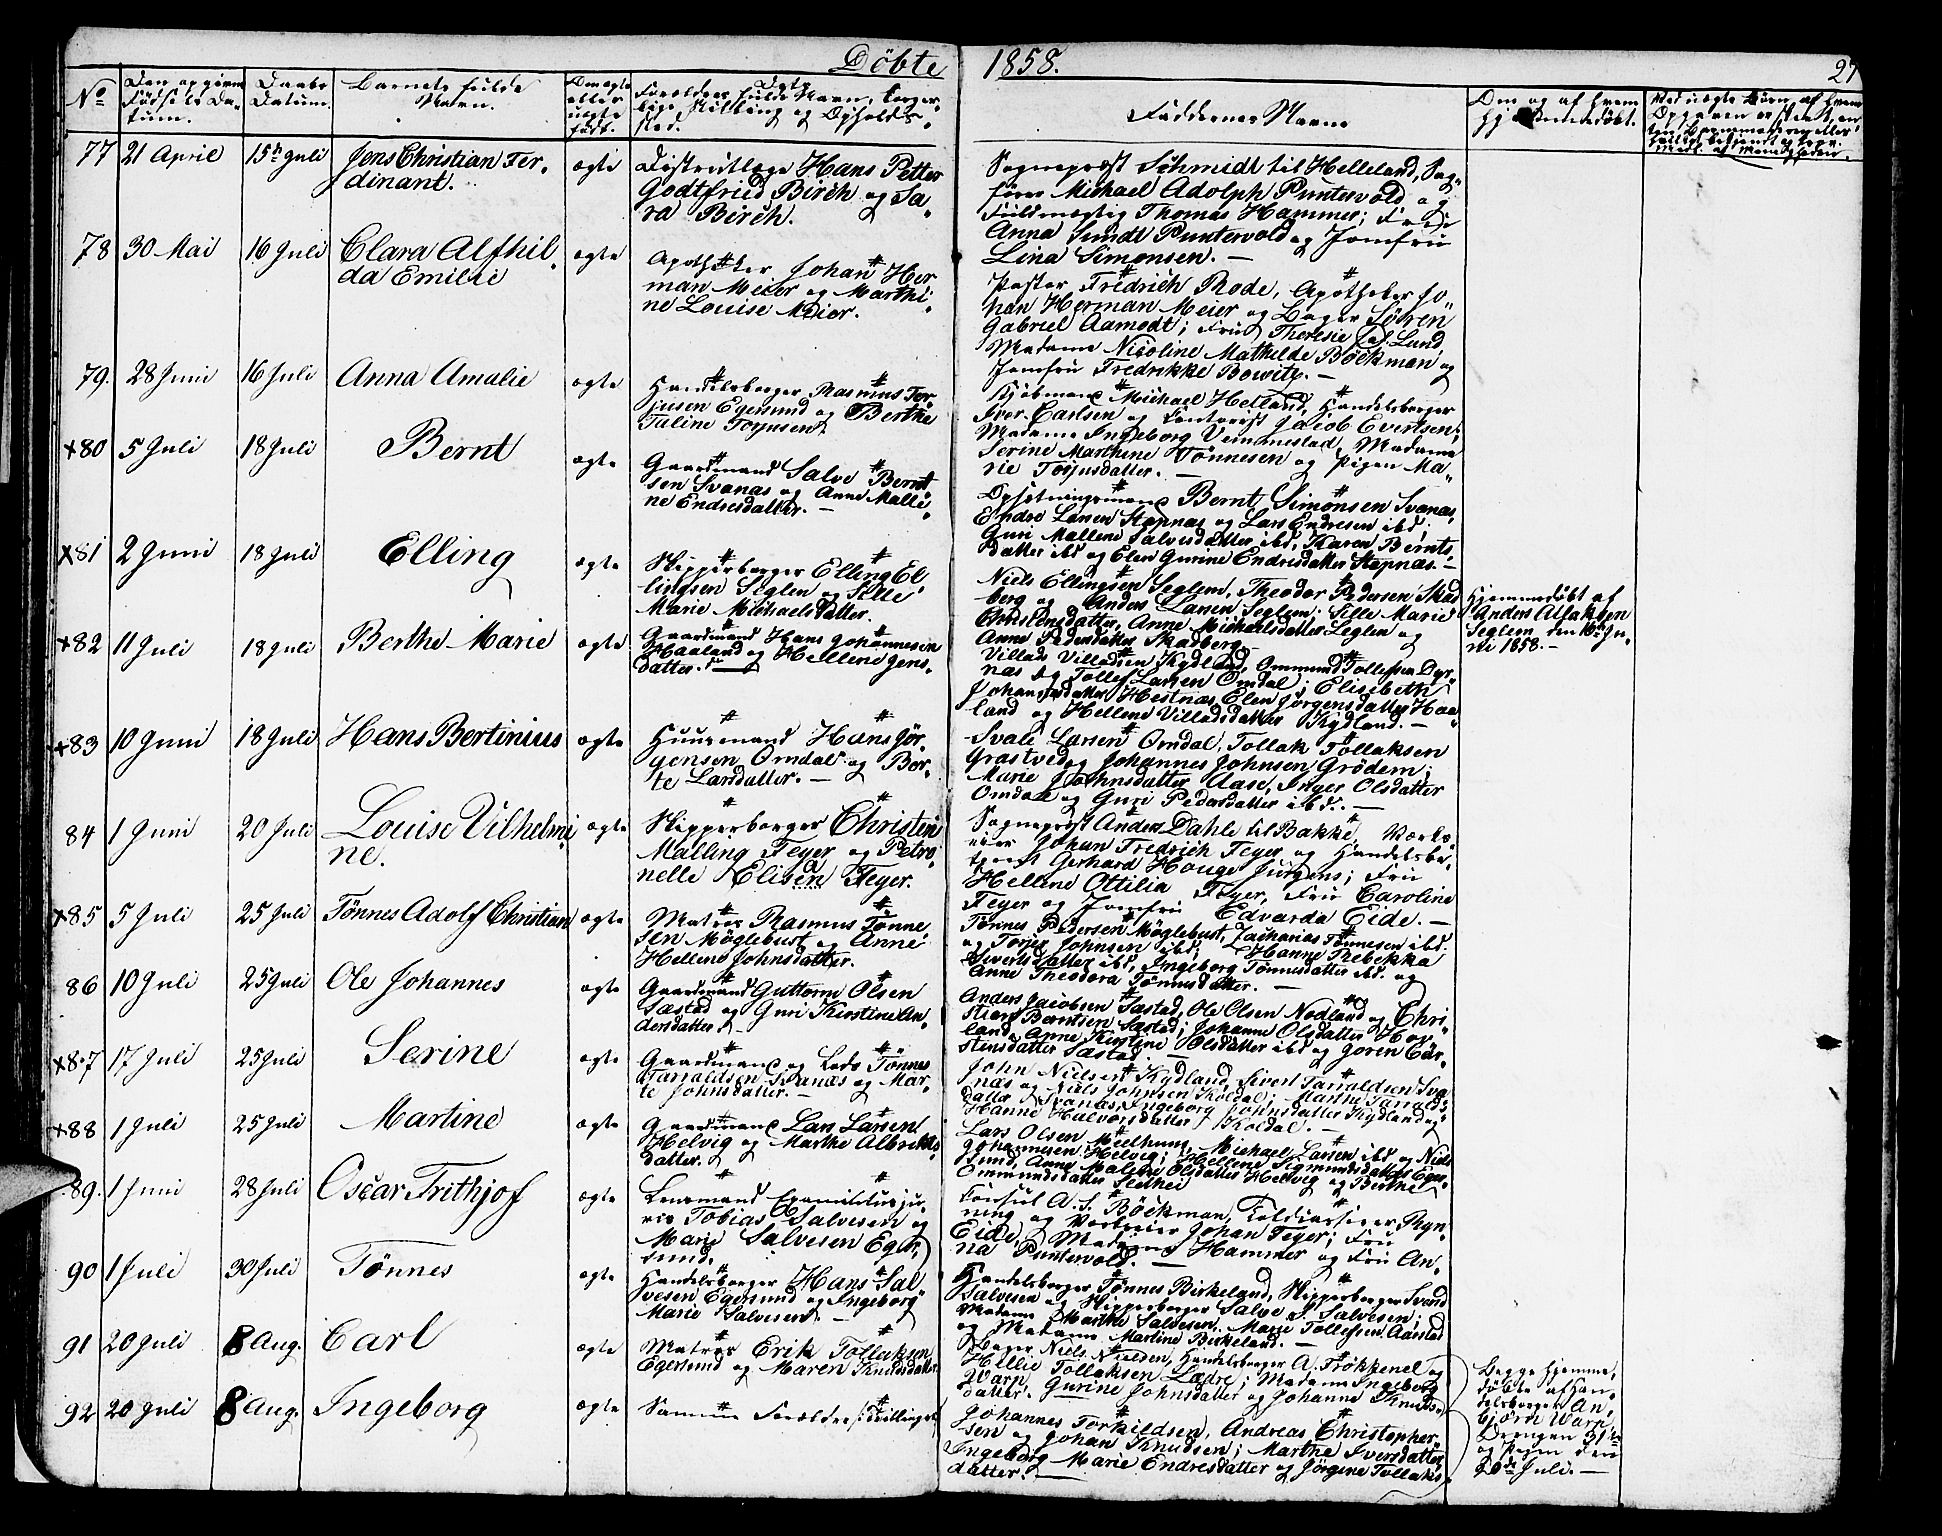 Döbte 1858. 27
No
Den opgivne Födsels Datum.
Daabs Datum.
Barnets fulde Navn.
Om ægte eller uægte födt.
Forældres fulde Navn, borgerlige Stilling og Opholdssted.
Faddernes Navne
Om og af hvem hjemmedöbt.
77 21 April 15de Juli Jens Christian Fer-
dinant.
ægte Districtslæge Hans Petter
Godtfried Birch og Sa-
ra Birch.
Sogneprest Schmidt til Helleland, Sag-
förer Michael Adolph Puntervold og
Fuldmægtig Thomas Hammer; Frue
Anna Smidt Puntervold og Jomfru
Lina Simonsen. —
78 30 Mai 16 Juli Clara Alfhil-
da Emilie
ægte Apotheker Johan Her-
man Meier og Marthi-
ne Louise Meier.
Pastor Fredrich Rode, Apotheker Jo-
han Herman Meier og Bager Sören
Gabriel Aamodt; Frue Theresie Lund
Madame Nicoline Mathilde Böckman og
Jomfru Fredrikke Bowitz. —
79. 28 Juni 16 Juli Anna Amalie
ægte Handelsborger Rasmus Tor-
jusen Egersund og Berthe
Taline Torjusen.
Kjöbmand Michael Helland, Handelsborger
Iver Carlsen og Contorist Jacob Evertsen;
Madame Ingeborg Veimmestad, Madame
Serine Marthine Tönnesen og Pigen Ma-
rie Torjusdatter. —
+80 5 Juli 18 Juli Bernt
ægte Gaardmand Salve Bernt-
sen Svanæs og Anne Malli-
ne Endresdatter. —
Opsetningsmand Bernt Simonsen Svanæs,
Endre Larsen Stapnæs og Lars Endresen ibd;
Guri Mallene Salvesdatter ibd, Karen Bernts-
datter ibd og Elen Gurine Endresdatter Stapnæs. —
+81 2 Juni 18 Juli Elling
ægte Skipperborger Elling El-
lingsen Seglem og Sille
Marie Michaelsdatter.
Niels Ellingsen Seglem, Theodor Pedersen Skad-
berg og Anders Larsen Seglem; Sille Marie
Christensdatter, Anne Michaelsdatter Seglem og
Anne Pedersdatter Skadberg. —
Hjemmedöbt af
Anders Atlaksen
Seglem den 16de Ju-
ni 1858. —
+82 11 Juli 18 Juli Berthe Marie
ægte Gaardmand Hans Johannesen
Haaland og Hellene Jens-
datter. —
Villads Villadsen Kydland, Ommund Tollefsen Dyr-
næs og Tollef Larsen Omdal; Elisabeth
Johannesdatter Hestnæs Elen Jörgensdatter Haa-
land og Hellene Villadsdatter Kydland. —
+83 10 Juni 18 Juli Hans Bertinius
ægte Huusmand Hans Jör-
gensen Omdal og Ber-
te Larsdatter. —
Svale Larsen Omdal, Tollak Tollaksen
Grastved og Johannes Johnsen Grödem;
Marie Johnsdatter Aase, Inger Olsdatter
Omdal og Guri Pedersdatter ibd. —
84 1 Juni 20 Juli Louise Vilhelmi-
ne.
ægte Skipperborger Christen
Malling Feyer og Petro-
nelle Elisen Feyer.
Sogneprest Anders Dahle til Bakke, Værks-
eier Johan Fredrich Feyer og Handelsbe-
tjent Gerhard Houge Jürgens; Frue
Hellene Ottilia Feyer, Frue Caroline
Feyer og Jomfru Edvarda Eide. —
+85 5 Juli 25 Juli Tönnes Adolf Christian
ægte Matros Rasmus Tönne-
sen Möglebust og Anne
Hellene Johnsdatter.
Tönnes Pedersen Möglebust, Zacharias Tönnesen ibd
og Torjer Johnsen ibd; Hanne Rebekka
Sivertsdatter ibd, Ingeborg Tönnesdatter ibd. og
Anne Theodora Tönnesdatter. —
86 10 Juli 25 Juli Ole Johannes
ægte Gaardmand Guttorm Olsen
Sæstad og Guri Kirstine An-
dersdatter. —
Anders Jacobsen Sæstad, Ole Olsen Nodland og Chri-
stian Berntsen Sæstad; Johanne Olsdatter Hov-
land, Anne Kirstine Olsdatter ibd og Joren Tör-
stensdatter Sæstad. —
+87 17 Juli 25 Juli Serine
ægte Gaardmand og Lods Tönnes
Tarraldsen Svanæs og Mar-
te Johnsdatter. —
John Nielsen Kydland, Sivert Tarraldsen Sva-
næs og Niels Johnsen Koldal; Marthe Tarralds-
datter Svanæs, Ingeborg Johnsdatter Kydland og
Hanne Halvorsdatter Koldal. —
+88 1 Juli 25 Juli Martine
ægte Gaardmand Lars Larsen
Helvig og Marthe Albrikts-
datter.
Lars Olsen Mielhuus, Michael Larsen ibd og Niels
Johannesen Helvig; Hellene Sigmundsdatter Eger-
sund, Anne Malene Olsdatter Helvig og Berthe
Ommundsdatter Slethei
89. 1 Juni 28 Juli Oscar Frithjof
ægte Lensmand Examinitusju-
ris Tobias Salvesen og
Marie Salvesen Eger-
sund.
Consul A. S. Böckman, Toldcasserer Ryn-
ning og Værkseier Johan Feyer; Frue
Eide, Madame Hammer og Frue An-
na Puntervold. —
90 1 Juli 30 Juli Tönnes
ægte Handelsborger Hans Sal-
vesen Egersund og Ingeborg
Marie Salvesen. —
Handelsborger Tönnes Birkeland, Skipperborger Svend
Salvesen og Skipperborger Salve S. Salvesen;
Madame Marthe Salvesen, Marie Tollefsen Aarstad
og Madame Martine Birkeland. —
91 20 Juli 8 Aug. Carl
ægte Matros Erik Tollaksen
Egersund og Maren Knudsdatter
Bager Niels Nielsen, Handelsborger A. Frökkenel og
Hellie Tollaksen Lædre; Madame Ingeborg
Warp, Gurine Johnsdatter og Johanne Knuds-
datter.
92 20 Juli 8 Aug. Ingeborg
ægte Samme Forældre /: Tvillinger :/
Johannes Torkildsen, Andreas Christopher-
sen og Johan Knudsen; Marthe Iversdatter,
Ingeborg Marie Endresdatter og Jörgine Tollaks-
datter. —
Begge hjemme-
döbte af Han-
delsborger An-
björn Warp,
Drengen 31te
og Pigen den
20de Juli. —